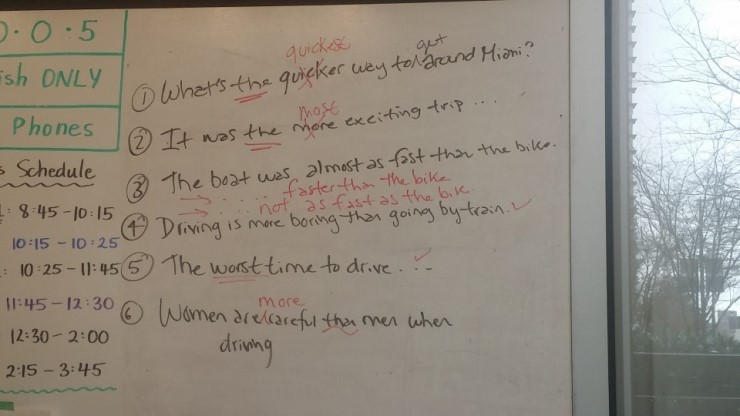 0.0.5
ish ONLY
Phones
s Schedule
: 8:45-10:15
10:15 - 10:25
: 10:25-11:45
11:45-12:30
12:30-2:00
2:15-3:45
quickest
get
① What's the quicker way to around Miami?
most
② It was the more exciting trip ...
③ The boat was almost as fast than the bike.
→ .... faster than the bike
→ .... not as fast as the bik.
④ Driving is more boring than going by train. ✓
⑤ The worst time to drive ...
more
⑥ Women are careful than men when
driving